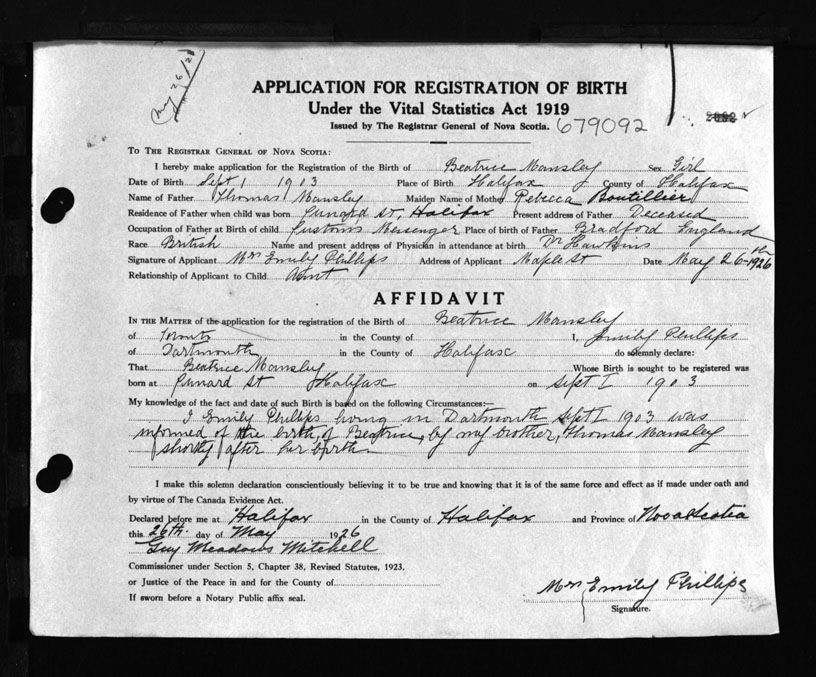 May 26/26
APPLICATION FOR REGISTRATION OF BIRTH
Under the Vital Statistics Act 1919
Issued by The Registrar General of Nova Scotia. 679092
TO THE REGISTRAR GENERAL OF NOVA SCOTIA:
I hereby make application for the Registration of the Birth of Beatrice Mansley Sex Girl
Date of Birth Sept 1 1903 Place of Birth Halifax County of Halifax
Name of Father Thomas Mansley Maiden Name of Mother Rebecca Boutillier
Residence of Father when child was born Cunard St, Halifax Present address of Father Deceased
Occupation of Father at Birth of child Customs Messenger Place of birth of Father Bradford England
Race British Name and present address of Physician in attendance at birth Dr Hawkins
Signature of Applicant Mrs Emily Phillips Address of Applicant Maple St Date May 26th 1926
Relationship of Applicant to Child Aunt
AFFIDAVIT
IN THE MATTER of the application for the registration of the Birth of Beatrice Mansley
of Toronto in the County of I, Emily Phillips
of Dartmouth in the County of Halifax do solemnly declare:
That Beatrice Mansley Whose Birth is sought to be registered was
born at Cunard St Halifax on Sept 1 1903
My knowledge of the fact and date of such Birth is based on the following Circumstances:—
I Emily Phillips living in Dartmouth Sept 1 1903 was
informed of the birth of Beatrice, by my brother, Thomas Mansley
shortly after her birth.
I make this solemn declaration conscientiously believing it to be true and knowing that it is of the same force and effect as if made under oath and
by virtue of The Canada Evidence Act.
Declared before me at Halifax in the County of Halifax and Province of Nova Scotia
this 26th. day of May 1926
Guy Meadows Mitchell
Commissioner under Section 5, Chapter 38, Revised Statutes, 1923.
or Justice of the Peace in and for the County of
If sworn before a Notary Public affix seal.
Mrs Emily Phillips
Signature.